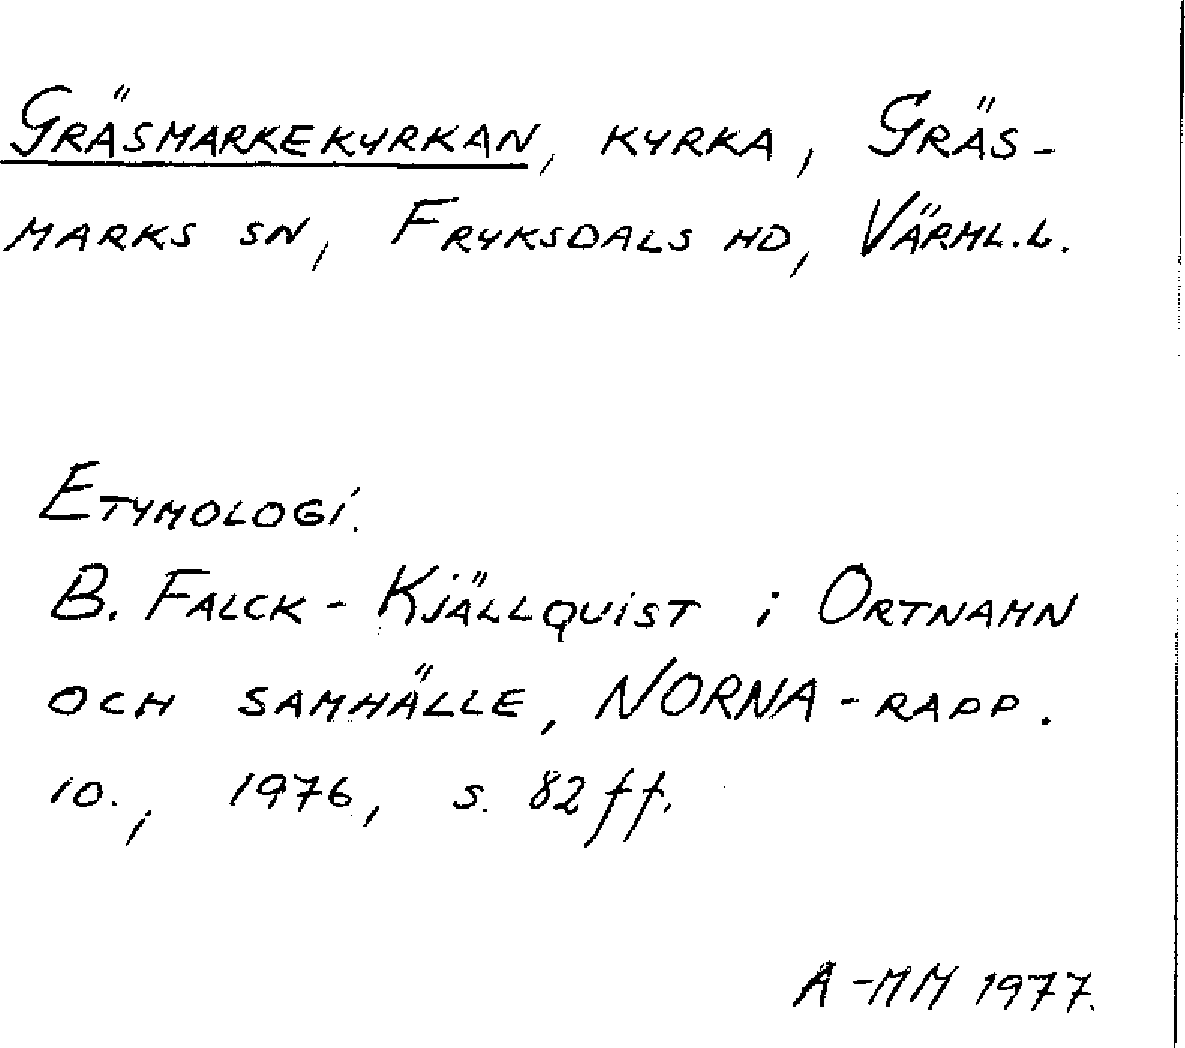 GRÄSMARKEKYRKAN, KYRKA, GRÄS-
MARKS SN, FRYKSDALS HD, VÄRML.L.
ETYMOLOGI.
B. FALCK-KJÄLLQUIST i ORTNAMN
OCH SAMHÄLLE, NORNA-RAPP.
10., 1976, S. 82ff.
A-MM 1977.